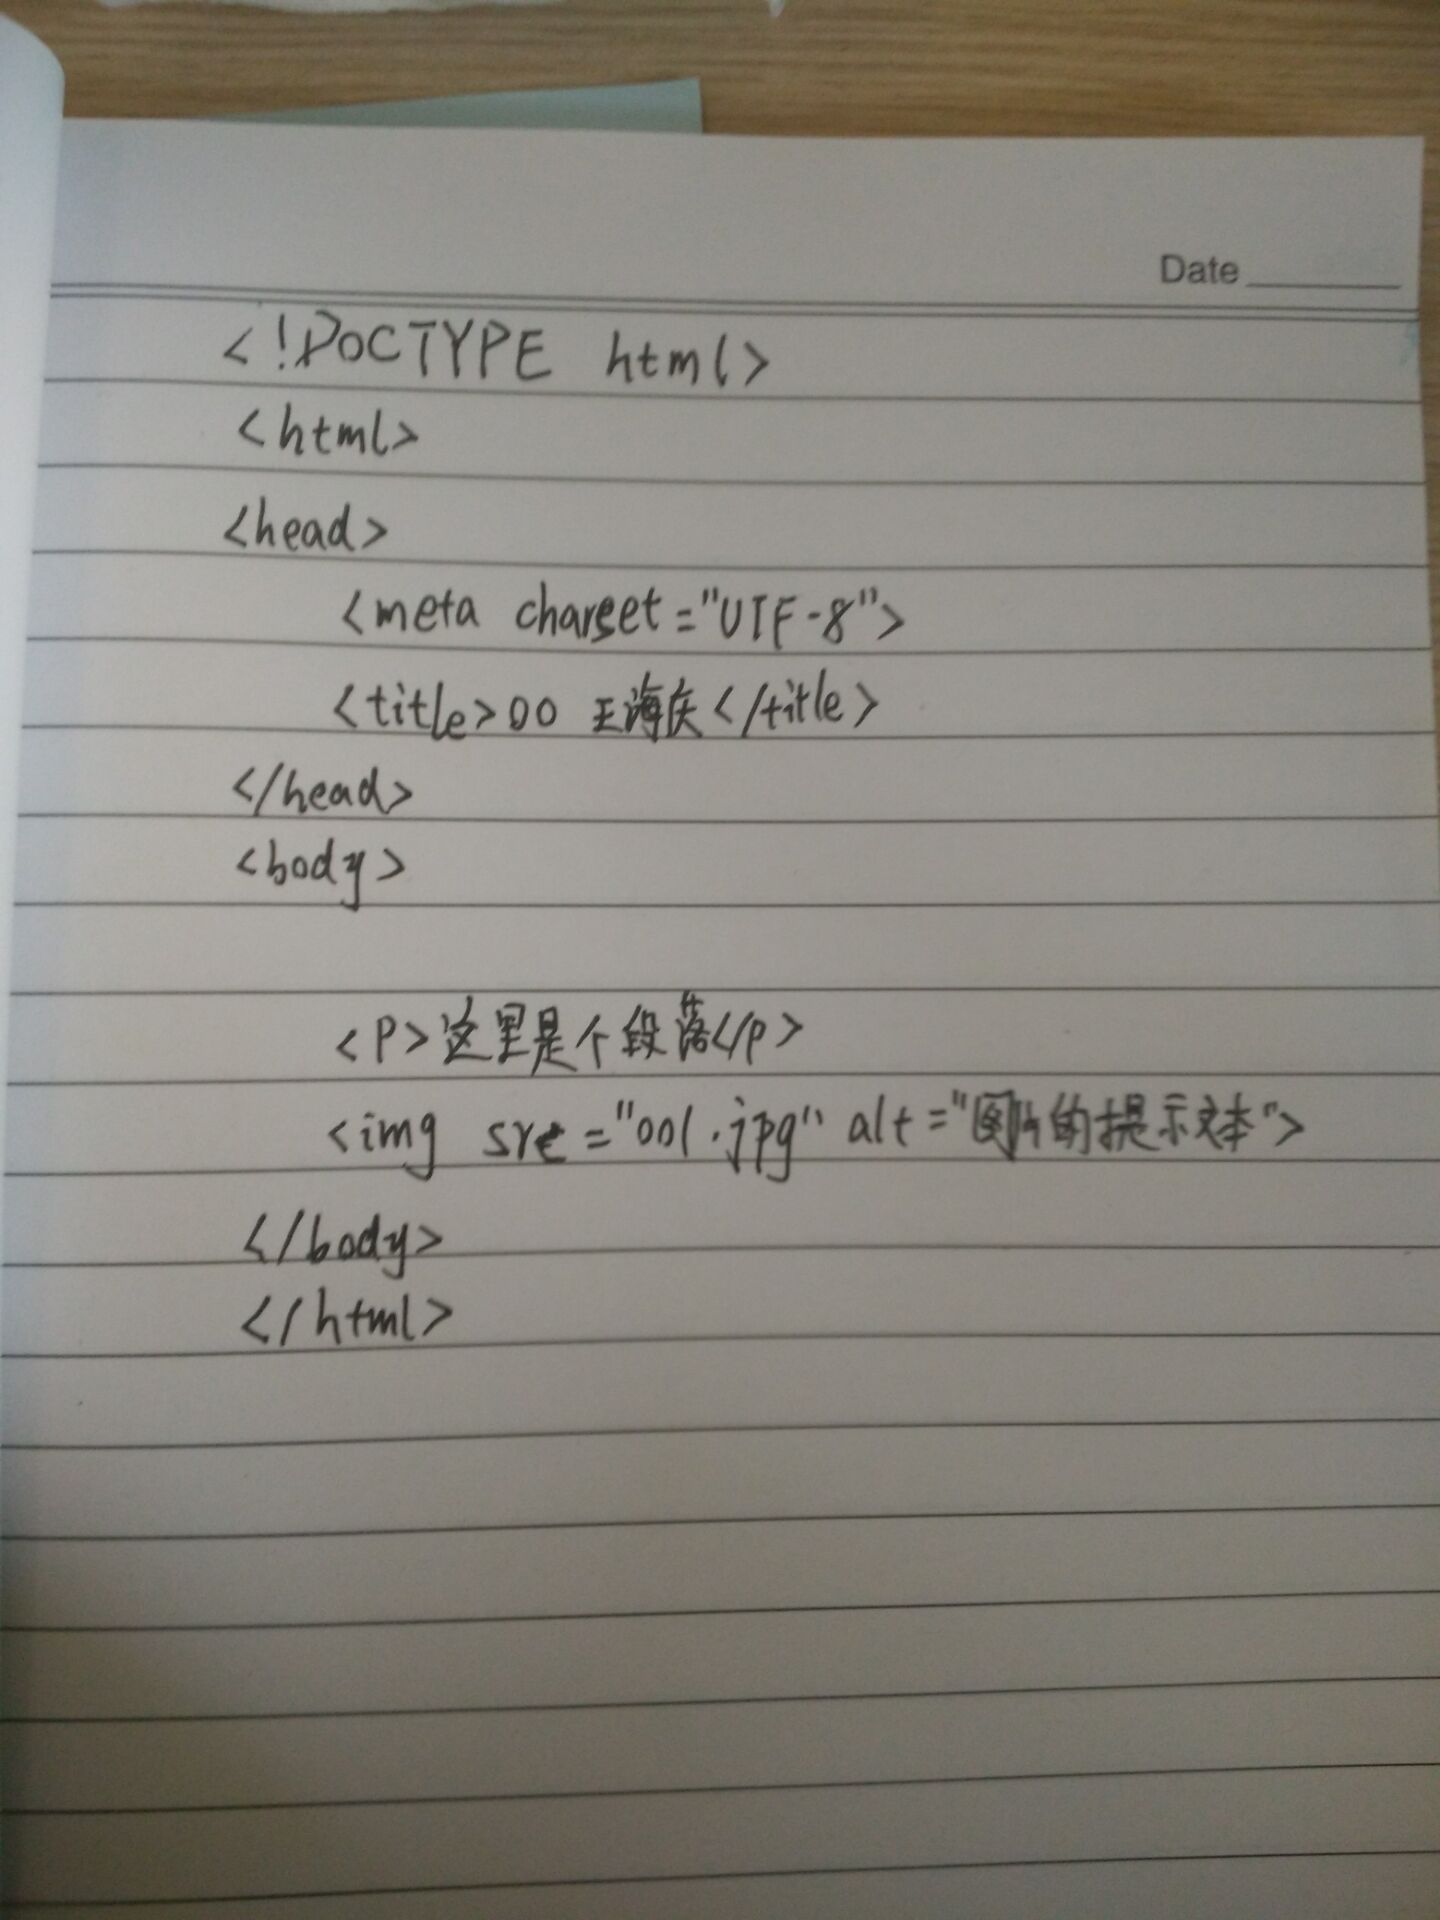 Date
<!DOCTYPE html>
<html>
<head>
<meta charset="UTF-8">
<title>00 王海庆</title>
</head>
<body>
<P>这里是个段落</p>
<img src="001.jpg" alt="图片的提示文本">
</body>
</html>